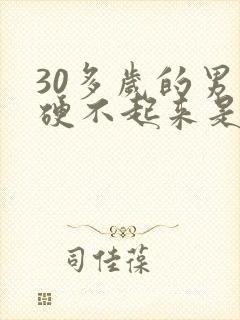 30多歲的男
硬不起来是
司佳葆